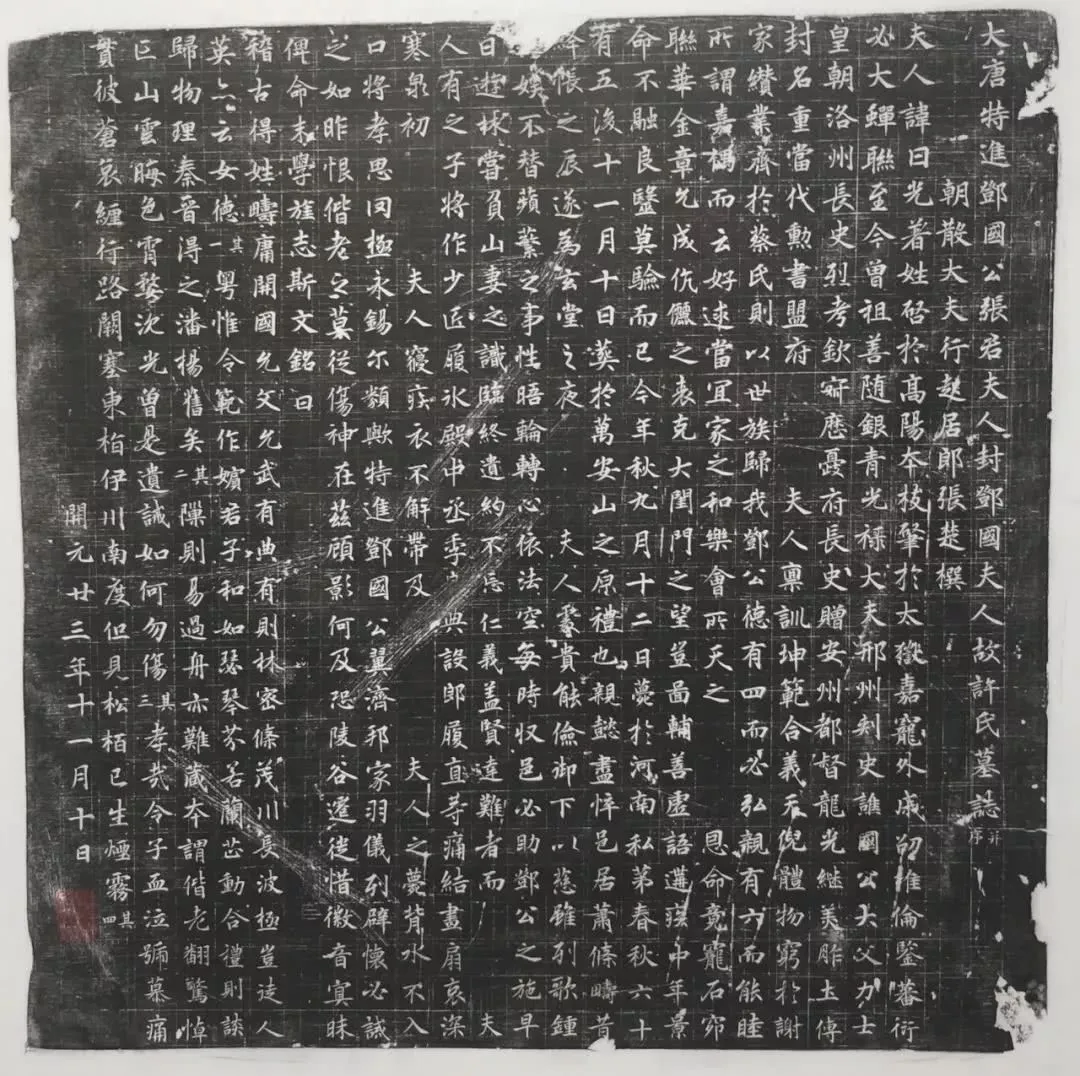 大唐特進鄧國公張君夫人封鄧國夫人故許氏墓誌并序
朝散大夫行起居郎張楚撰
夫人諱曰光著姓啓於高陽夲枝肇於太嶽嘉寵外戚初惟倫鑒蕃衍
必大蟬聯至今曾祖善随銀青光禄大夫邢州刺史譙國公大父力士
皇朝洛州長史烈考欽寂應憂府長史贈安州都督龍光継美胙土傳
封名重當代勲書盟府 夫人禀訓坤範合義天倪體物窮於謝
家纘業齊於蔡氏則以世族歸我鄧公德有四而必弘親有六而能睦
所謂嘉耦而云好逑當冝家之和樂會所天之 恩命竟寵石窌
聯華金章允成伉儷之表克大閨門之望豈啚輔善虚語遘疾中年景
命不融良毉莫驗而已今年秋九月十二日薨於河南私第春秋六十
有五浚十一月十日葬於萬安山之原禮也親懿盡悴邑居蕭條疇昔
帳之辰遂為玄堂之夜 夫人家貴能儉御下以慈雖列歌鍾
娱不替蘋蘩之事性晤輪轉心依法空每時収邑必助鄧公之施早
日遊林嘗負山妻之識臨終遺約不忘仁義盖賢達難者而 夫
人有之子將作少匠履氷殿中丞季良典設郎履直等痛結晝扇哀深
寒泉初 夫人寢疾衣不解帶及 夫人之薨背水不入
口將孝思罔極永錫尔類歟特進鄧國公翼濟邦家羽儀列辟懷必誠
之如昨恨偕老之莫從傷神在茲顧影何及恐陵谷遷徙惜徽音寘昧
俾命末學旌志斯文銘曰
稽古得姓疇庸開國允文允武有典有則林宻條茂川長波極豈徒人
英亦云女德其一粤惟令範作嬪君子和如瑟琴芬若蘭芷動合禮則談
歸物理秦晉淂之潘楊舊矣其二隟則易過舟亦難蔵夲謂偕老翻驚悼
亡山雲晦色霄婺沈光曾是遺誡如何勿傷其三孝哉令子血泣號慕痛
貫彼蒼哀纏行路闕塞東栢伊川南度但見松栢已生煙霧其四
開元廿三年十一月十日